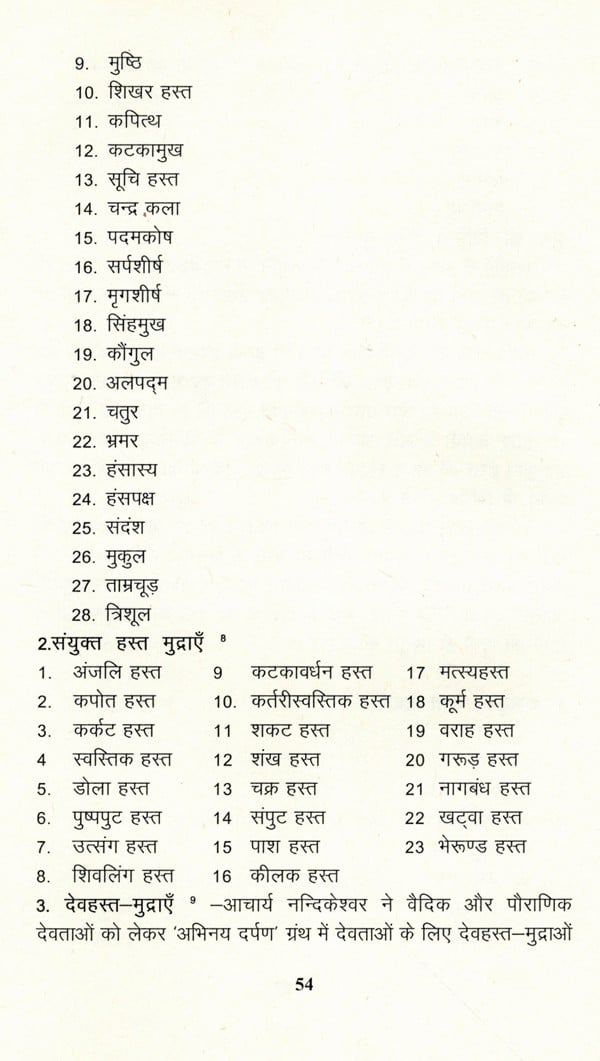 9. मुष्ठि
10. शिखर हस्त
11. कपित्थ
12. कटकामुख
13. सूचि हस्त
14. चन्द्र कला
15. पदमकोष
16. सर्पशीर्ष
17. मृगशीर्ष
18. सिंहमुख
19. कौंगुल
20. अलपद्म
21. चतुर
22. भ्रमर
23. हंसास्य
24. हंसपक्ष
25. संदंश
26. मुकुल
27. ताम्रचूड़
28. त्रिशूल
2.संयुक्त हस्त मुद्राएँ ⁸
1. अंजलि हस्त 9 कटकावर्धन हस्त 17 मत्स्यहस्त
2. कपोत हस्त 10. कर्तरीस्वस्तिक हस्त 18 कूर्म हस्त
3. कर्कट हस्त 11 शकट हस्त 19 वराह हस्त
4 स्वस्तिक हस्त 12 शंख हस्त 20 गरूड़ हस्त
5. डोला हस्त 13 चक्र हस्त 21 नागबंध हस्त
6. पुष्पपुट हस्त 14 संपुट हस्त 22 खट्वा हस्त
7. उत्संग हस्त 15 पाश हस्त 23 भेरूण्ड हस्त
8. शिवलिंग हस्त 16 कीलक हस्त
3. देवहस्त–मुद्राएँ ⁹ –आचार्य नन्दिकेश्वर ने वैदिक और पौराणिक
देवताओं को लेकर 'अभिनय दर्पण' ग्रंथ में देवताओं के लिए देवहस्त–मुद्राओं
54